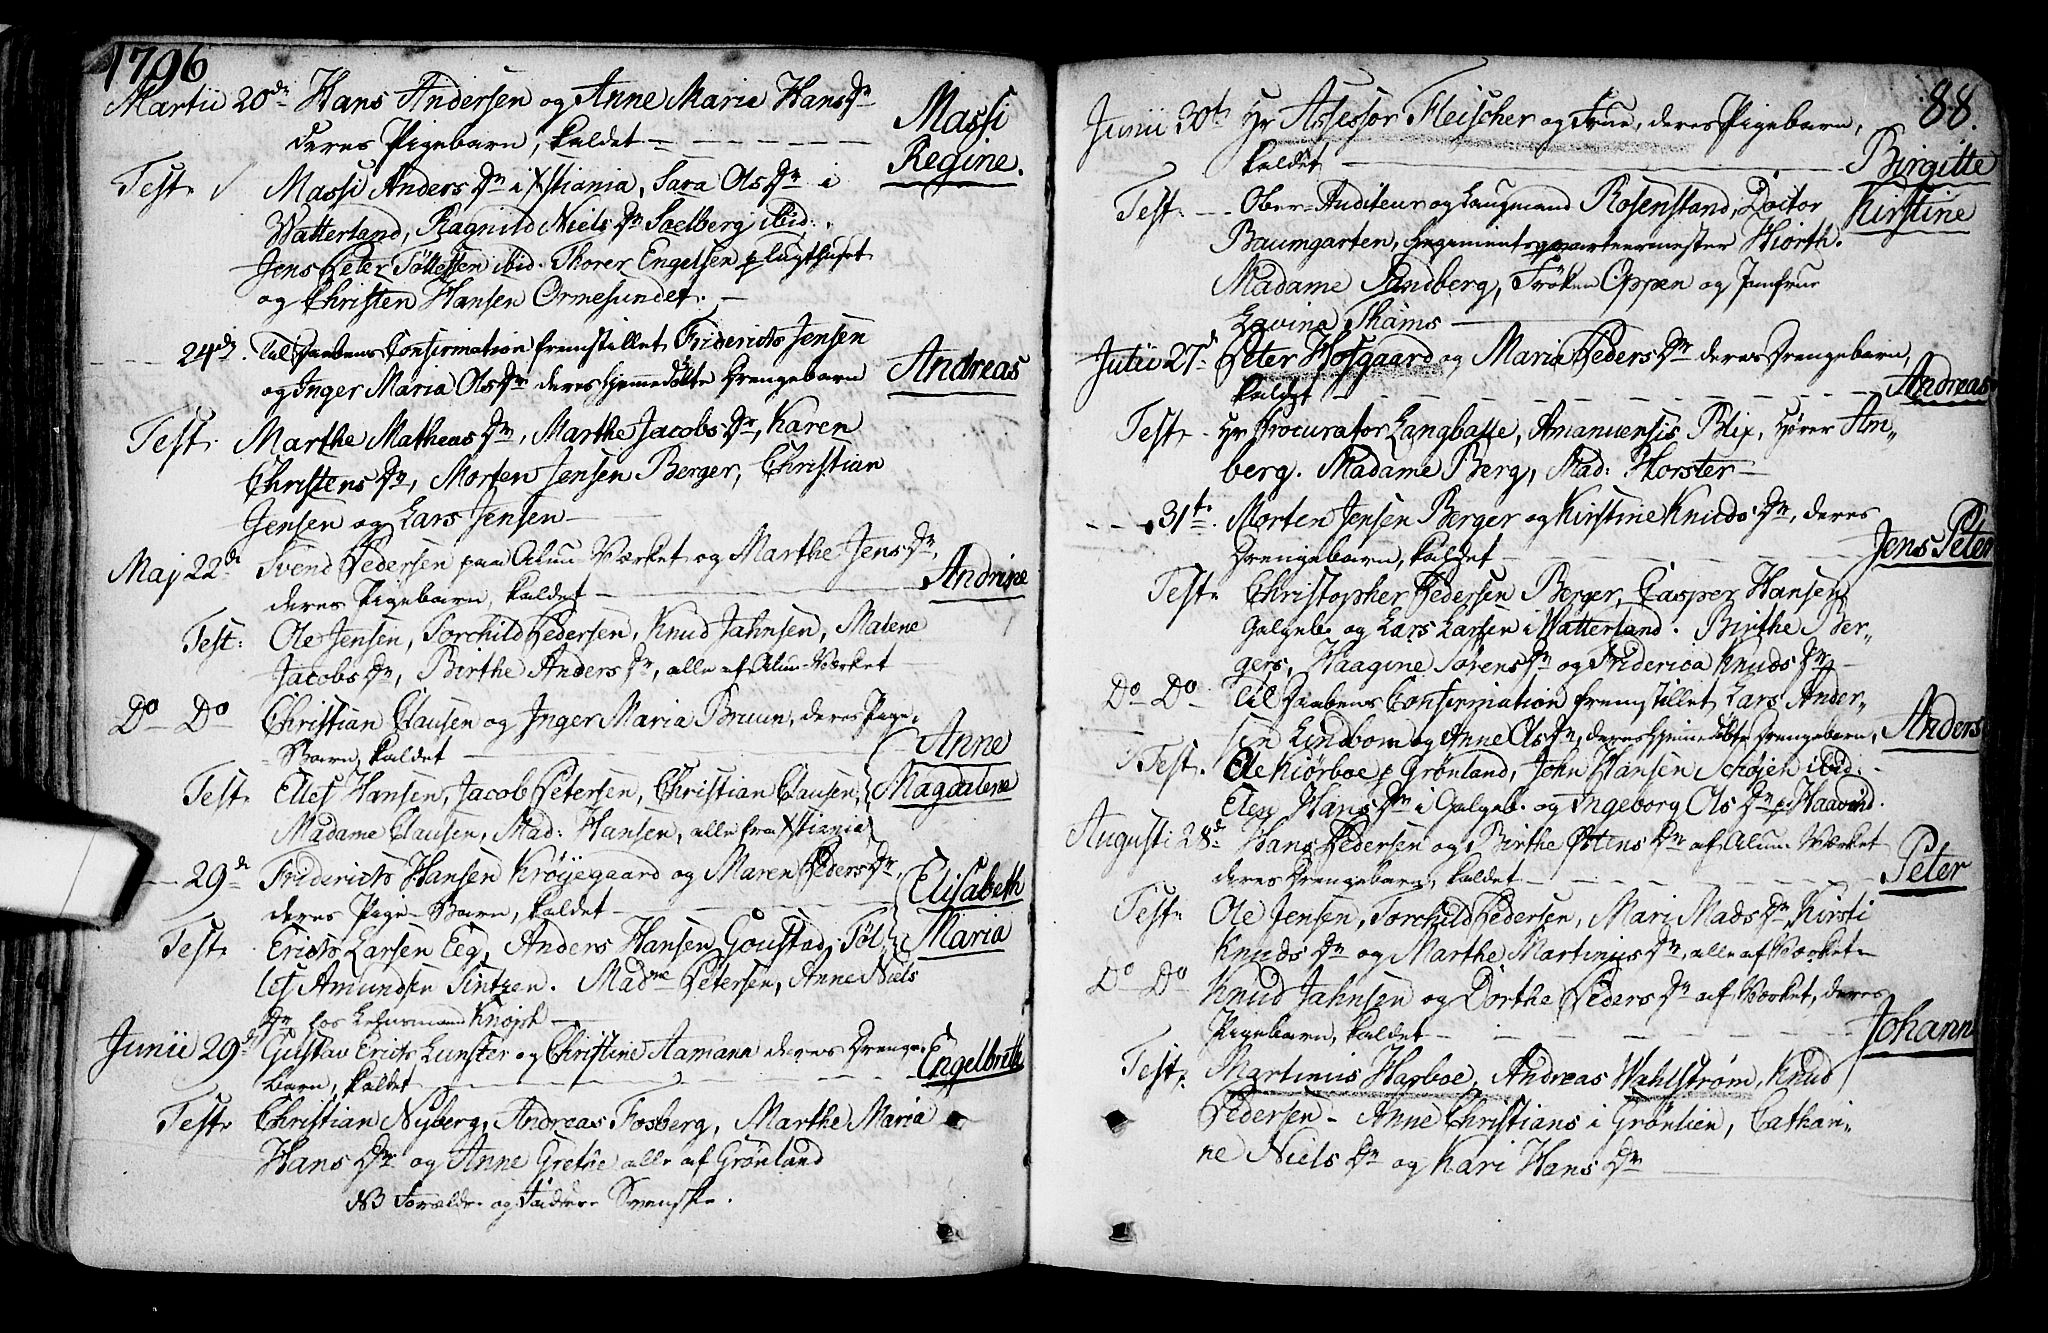 1796
Martii 20de Hans Andersen og Anne Maria Hans Dr
deres Pigebarn, kaldet Massi
Regine.
Test. Massi Anders Dr i Xstiania, Sara Ols Dr i
Watterland, Ragnild Niels Dr Soelberg ibid:
Jens Peter Töllefsen ibid. Thorer Engelsen p Tugthuset
og Christen Hansen Ormesundet.
24de. Til Daabens Confirmation fremstillet Friderich Jensen
og Inger Maria Ols Dr deres hjemmedöbte Drengebarn Andreas
Test. Marthe Matheas Dr, Marthe Jacobs Dr, Karen
Christens Dr, Morten Jensen Berger, Christian
Jensen og Lars Jensen
Maj 22de Svend Pedersen paa Alun-Værket og Marthe Jens Dr,
deres Pigebarn, kaldet Andrine
Test: Ole Jensen, Torchild Pedersen, Knud Jahnsen, Malene
Jacobs Dr, Birthe Anders Dr, alle af Alun-Værket
Do Do Christian Clausen og Inger Maria Bruun, deres Pige-
Barn, kaldet Anne
Test. Elles Hansen, Jacob Petersen, Christian Clausen, Magdalena
Madame Clausen, Mad: Hansen, alle fra Xstiania
29de Friderich Hansen Kröyegaard og Maren Peders Dr,
deres Pige-Barn, kaldet Elisabeth
Test. Erich Larsen Eeg, Anders Hansen Goustad, Töl- Maria
lef Amundsen Sintzen. Madme Petersen, Anne Niels
Dr hos Lehnsmand Knoph
Junii 29de Gustav Erich Lunster og Christine Aamann deres Drenge-
barn, kaldet Engelbreth
Test. Christian Nyberg, Andreas Fosberg, Marthe Maria
Hans Dr og Anne Grethe alle af Grönland
NB Forældre og Faddere Svenske.
88.
Junii 30te Hr Assessor Fleischer og Frue, deres Pigebarn,
kaldet Birgitte
Test. Ober-Auditeur og Laugmand Rosenstand, Doctor Kirstine
Baumgarten, Regimentsqvarteermester Hiorth.
Madame Sandberg, Fröken Oppen og Jomfrue
Lavina Thams
Julii 27de Peter Hofgaard og Maria Peders Dr deres Drengebarn,
kaldet Andreas
Test. Hr Procurator Langballe, Amanuensis Blix, Hörer Am-
berg. Madame Berg, Mad: Horster
31te. Morten Jensen Berger og Kirstine Knuds Dr, deres
Drengebarn, kaldet Jens Peter
Test. Christopher Pedersen Berger, Casper Hansen
Galgeb. og Lars Larsen i Watterland. Birthe Ber-
gers, Haagine Sörens Dr og Friderica Knuds Dr
Do Do Til Daabens Confirmation fremstillet Lars Ander-
sen Lindbom og Anne Ols Dr, deres hjemmedöbte Drengebarn, Anders
Test. Ole Kiörboe p Grönland, John Hansen Schöjen ibid.
Elen Hans Dr i Galgeb. og Ingeborg Ols Dr p Haavind.
Augusti 28de Hans Pedersen og Birthe Östens Dr af Alun-Værket
deres Drengebarn, kaldet Peter
Test. Ole Jensen, Torchild Pedersen, Mari Mads Dr, Kirsti
Knuds Dr og Marthe Martinius Dr, alle af Værket
Do Do Knud Jahnsen og Dorthe Peders Dr af Værket, deres
Pigebarn, kaldet Johann
Test. Martinus Harboe, Andreas Wahlström, Knud
Pedersen - Anne Christians i Grönlien, Cathari-
ne Niels Dr og Kari Hans Dr